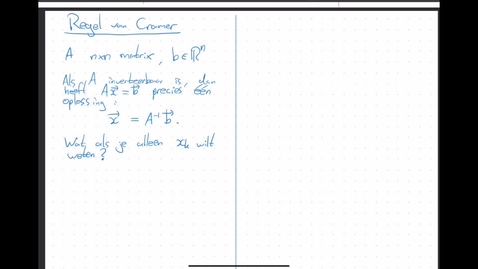 Regel van Cramer
A n×n matrix, b∈ℝⁿ
Als A inverteerbaar is, dan
heeft Ax⃗=b⃗ precies één
oplossing:
x⃗ = A⁻¹b⃗.
Wat als je alleen xₖ wilt
weten?